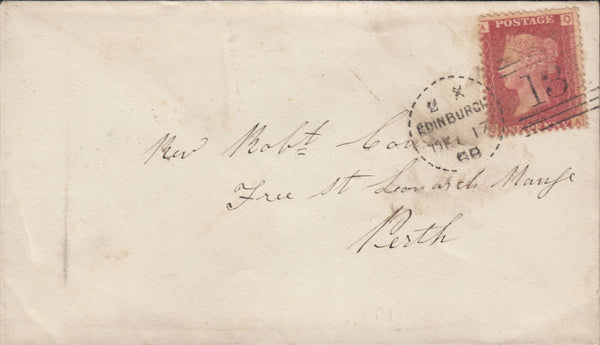 A Q
POSTAGE
13
X
EDINBURGH
DEC 17
68
Revd Robt
Free St Leonards Manse
Perth